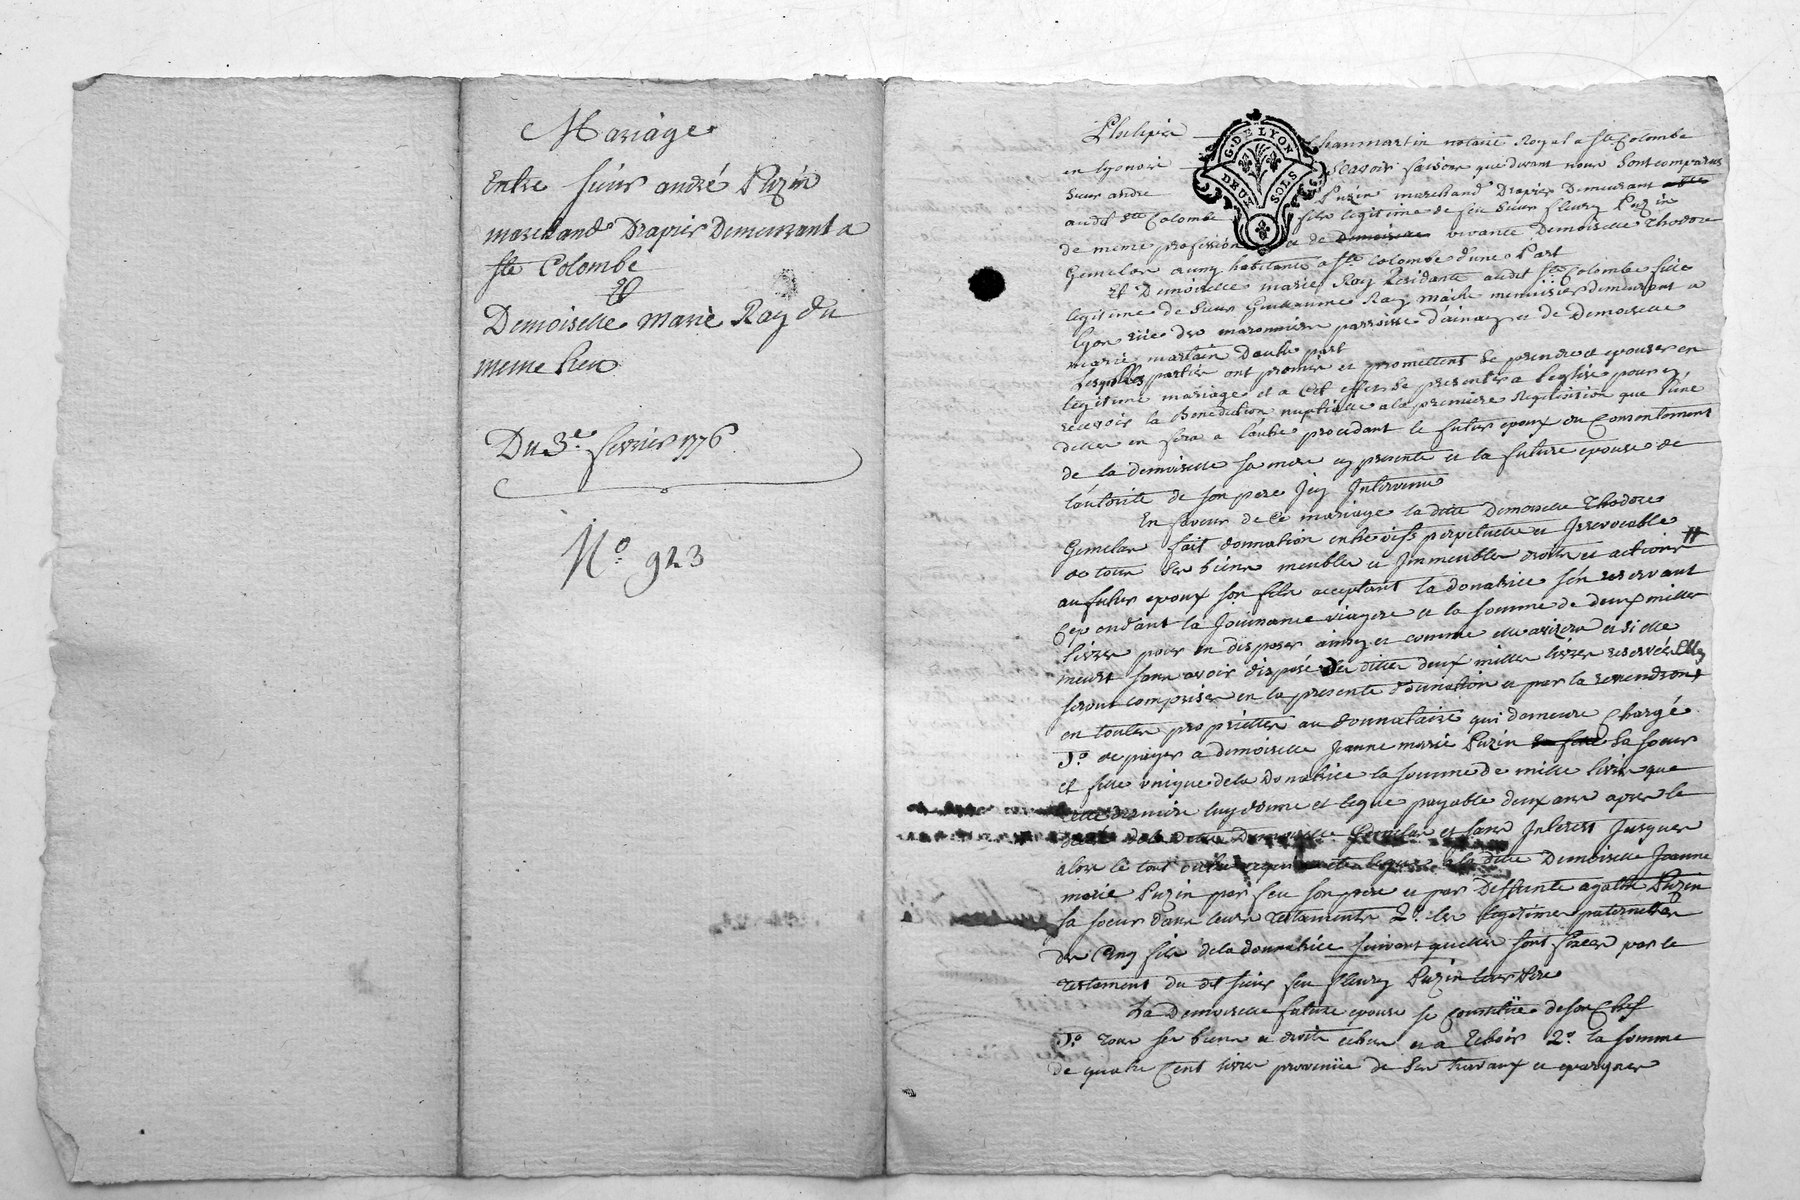 Mariage
Entre sieur andré Puzin
marchand Drapier Demeurant a
Ste Colombe
Et
Demoiselle marie Ray du
meme lieu
Du 3e. fevrier 1776
No. 923
G. DE LYON
DEUX SOLS
Philipe Chaumartin notaire Royal a Ste Colombe
en lyonois scavoir faisons que devant nous sont comparus
sieur andre Puzin marchand Drapier Demeurant
audt Ste Colombe fils legitime de feu sieur fleury Puzin
de meme profession et de vivante Demoiselle Thodore
Gemelas a Ste Colombe d'une Part
Et Demoiselle marie Ray Residante audit Ste Colombe fille
legitime de sieur Guillaume Ray maitre menuisier demeurant a
lyon rüe des maronniers parroisse d'ainay et de Demoiselle
marie martain D'autre part
Lesquelles parties ont promis et promettent se prendre et epouser en
legitime mariage et a cet effet se presenter a l'eglise pour y
recevoir la Benediction nuptialle a la premiere Requisition que l'une
delles en fera a l'autre procedant le futur epoux du Consentement
de la demoiselle sa mere cy presente et la future epouse de
l'autorité de son pere Icy Intervenu
En faveur de Ce mariage la ditte Demoiselle Thodore
Gemelas fait donnation entre vifs perpetuelle et Irrevocable
de tous ses biens meubles et Immeubles droits et actions #
au futur epoux son fils acceptant la donatrice s'en reservant
Cependant la Jouissance viagere et la somme de deux milles
livres pour en disposer ainsy et comme elle avizera et si elle
meurt sans avoir disposé des dittes deux milles livres reservées Elles
seront comprises en la presente donnation et par la reviendront
en toutes proprietter au donnataire qui demeure Chargé
1o. de payer a demoiselle Jeanne marie Puzin sa soeur
et fille unique de la Donatrice la somme de mille livres que
cette derniere luy donne et legue payable deux ans apres le
deces de la ditte Demoiselle Gemelas et sans Interest Jusques
alors le tout outre legué a la ditte Demoiselle Jeanne
marie Puzin par feu son pere et par deffunte agathe Puzin
sa soeur dans leurs testaments 2o. les legitimes paternelles
des Cinq fils de la donnatrice suivant quelles sont fixées par le
testament du dt sieur feu fleury Puzin leur Pere
La Demoiselle future epouse se Constitüe de son Chef
1o. tous ses biens et droits echus et a Echoir 2o. la somme
de quatre Cent livres provenüe de ses travaux et epargnes